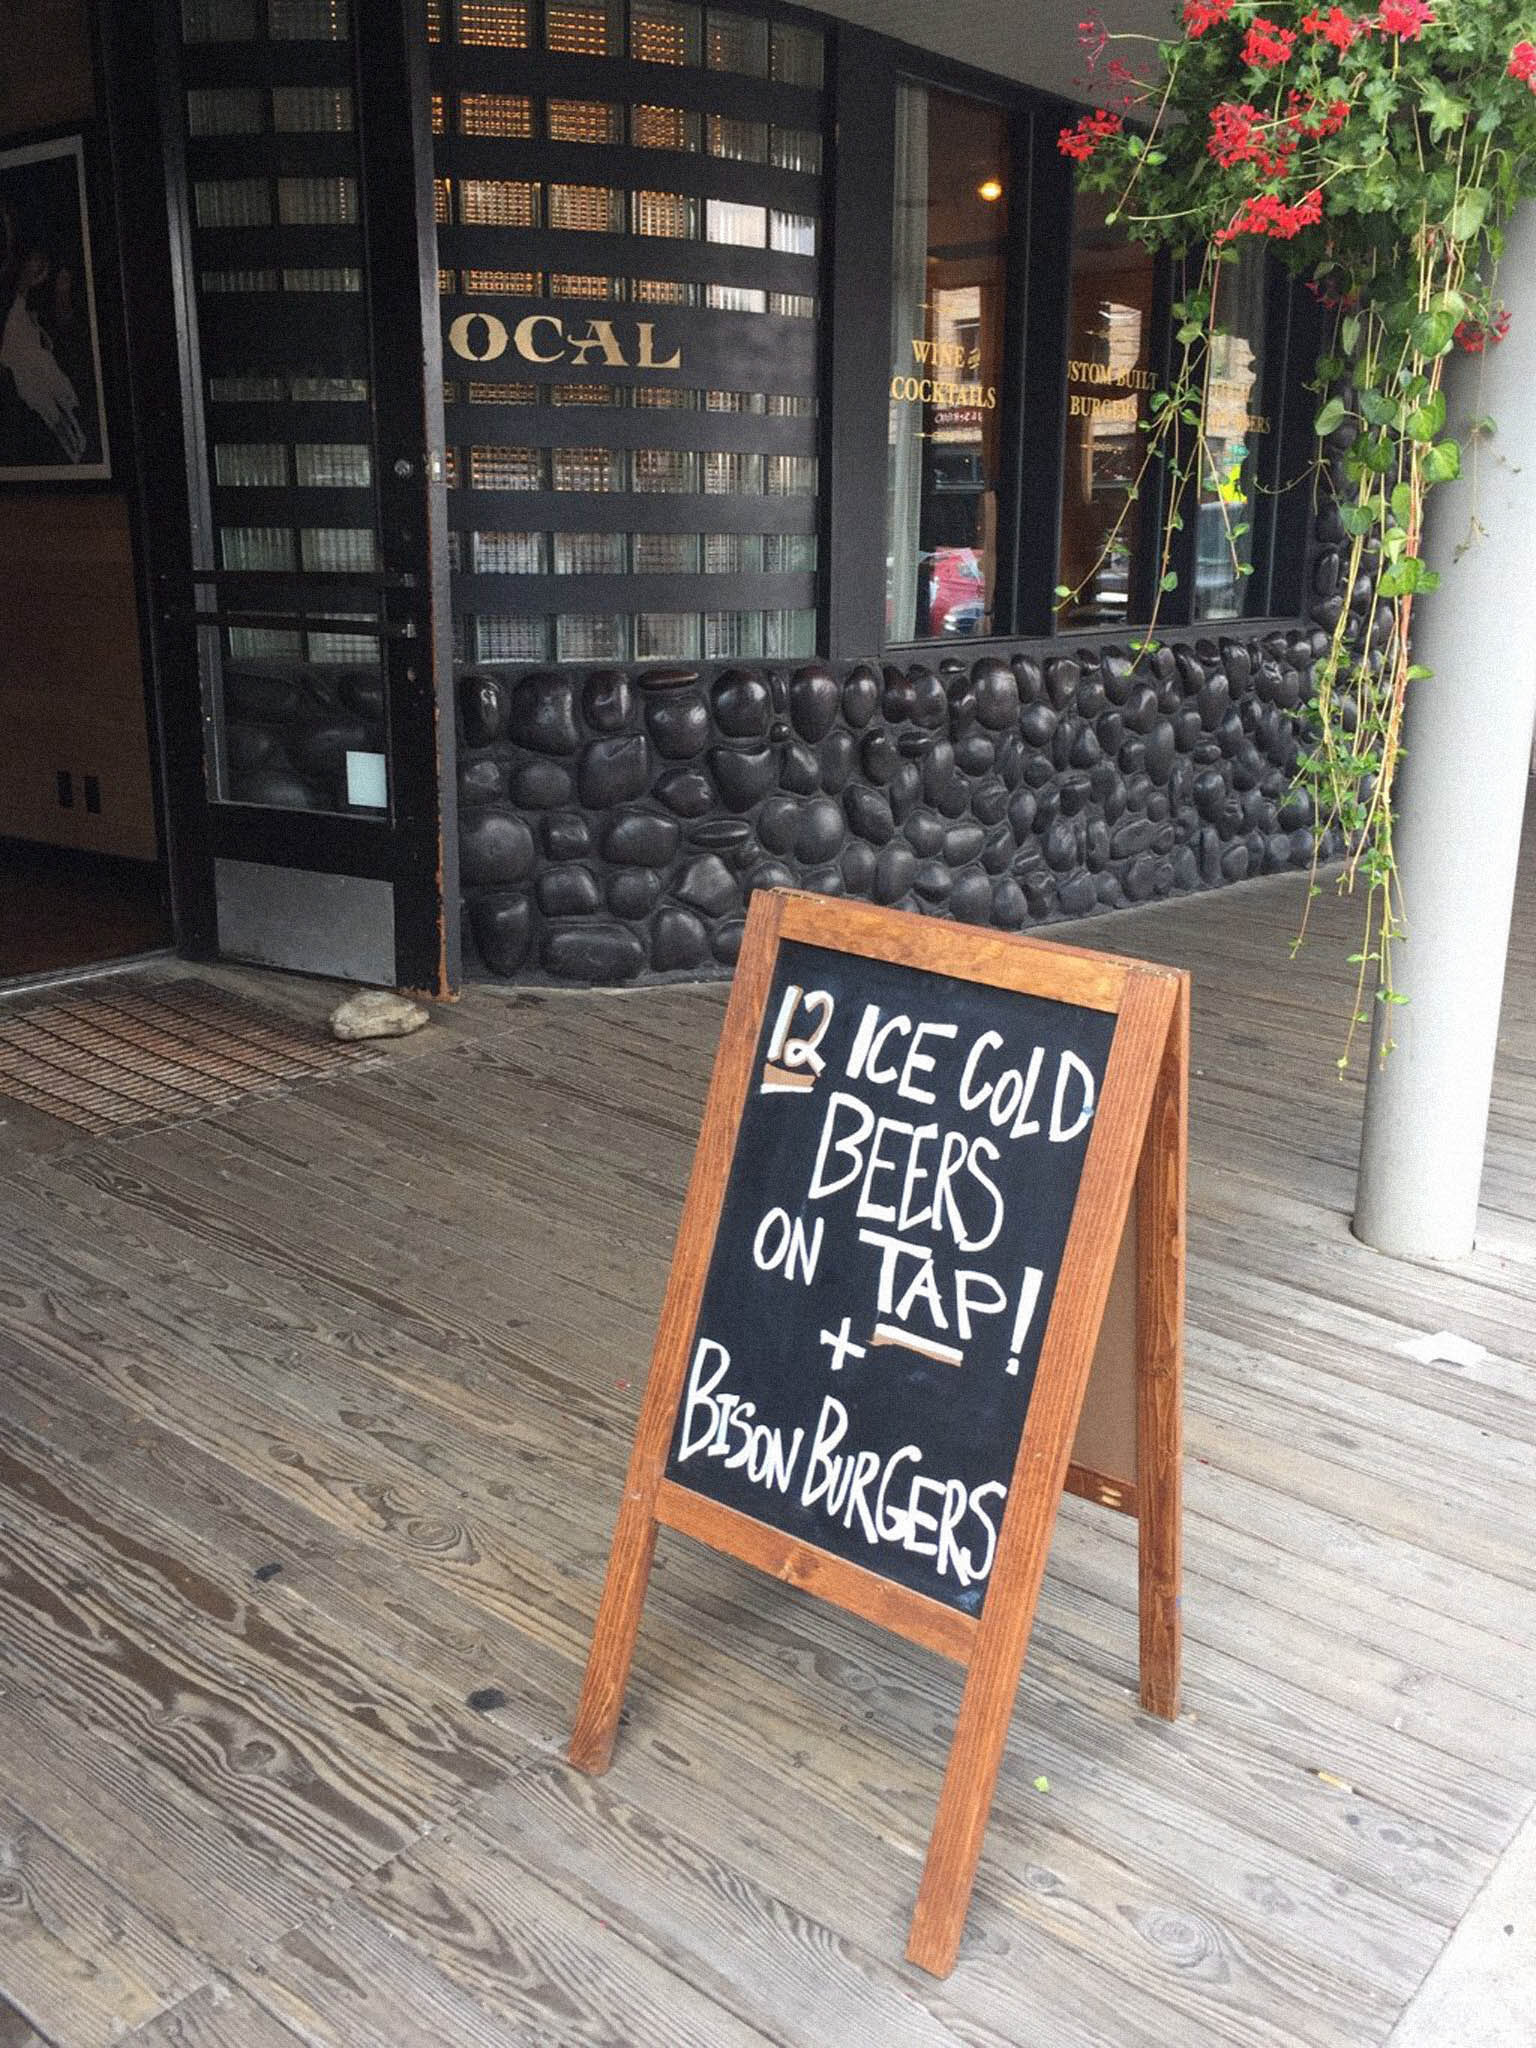 OCAL
WINE
COCKTAILS
USTOM BUILT
BURGERS
12 ICE COLD
BEERS
ON TAP!
+
BISON BURGERS